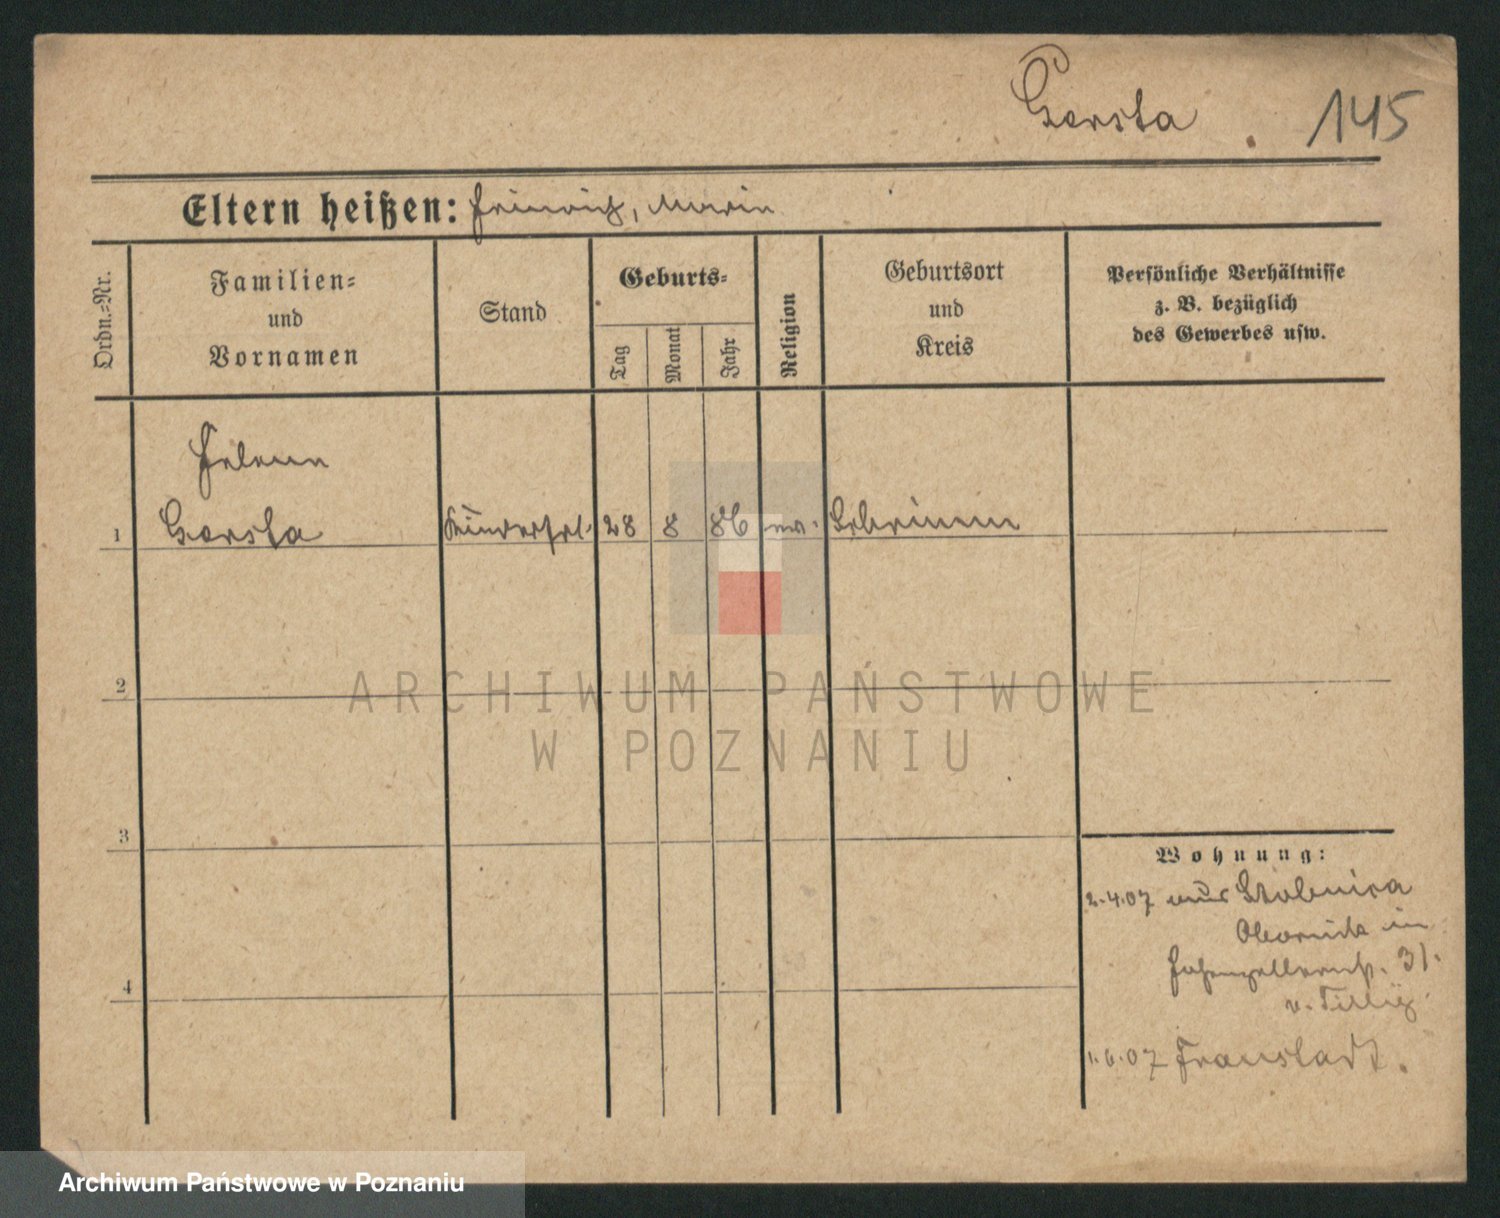 Gersta 145
Eltern heißen: Heinrich, Marie
Ordn.=Nr.
Familien=
und
Vornamen
Stand
Geburts=
Tag
Monat
Jahr
Religion
Geburtsort
und
Kreis
Persönliche Verhältnisse
z. B. bezüglich
des Gewerbes usw.
Helene
1 Gersta Kinderfrl. 28 8 86 ev.
2
3
4
Wohnung:
2.4.07 aus
Obornik in
Hohenzollernstr. 31.
v.
1.6.07 Fraustadt.
ARCHIWUM PAŃSTWOWE
W POZNANIU
Archiwum Państwowe w Poznaniu